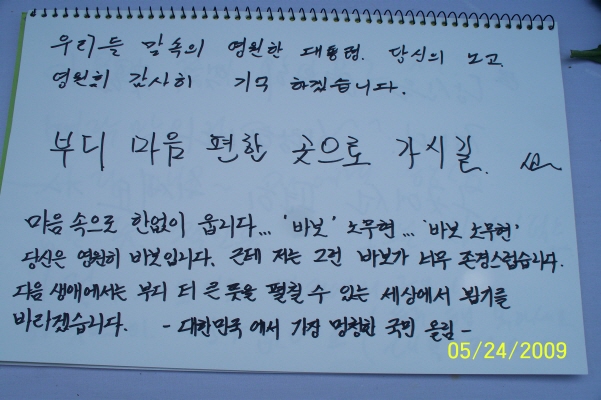 우리들 맘속의 영원한 대통령. 당신의 노고.
영원히 감사히 기억 하겠습니다.
부디 마음 편한 곳으로 가시길.
마음 속으로 한없이 웁니다... '바보' 노무현... '바보 노무현'
당신은 영원히 바보입니다. 근데 저는 그런 바보가 너무 존경스럽습니다.
다음 생애에서는 부디 더 큰 뜻을 펼칠 수 있는 세상에서 뵙기를
바라겠습니다. - 대한민국 에서 가장 멍청한 국민 올림 -
05/24/2009